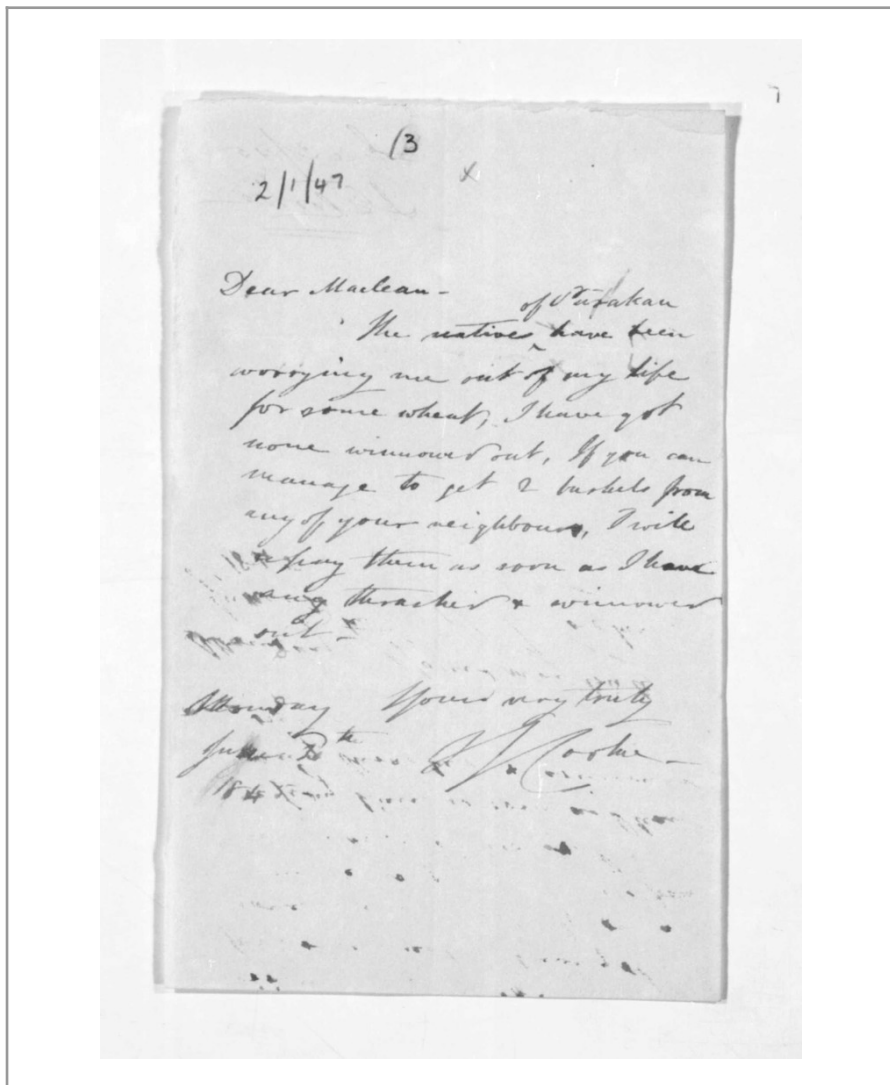 /3
2/1/47
x
Dear Maclean -
of Purakau
The natives ^ have been
worrying me out of my life
for some wheat, I have got
none winnowed out, If you can
manage to get 2 bushels from
any of your neighbours, I will
repay them as soon as I have
any thrashed & winnowed
out
Monday Yours very truly
J Cooke -
184